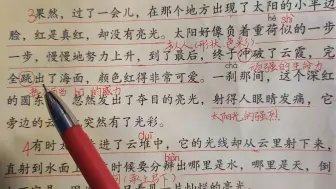 3果然，过了一会儿，在那个地方出现了太阳的小半边
脸，红是真红，却没有亮光。太阳好像负着重荷似的一
fù hè shì
步一步，慢慢地努力上升，到了最后，终于冲破了云霞，完
拟人 (形状 色彩)
全跳出了海面，颜色红得非常可爱。一刹那间，这个深红
顽强的生命力
的圆东西，忽然发出了夺目的亮光，射得人眼睛发痛，它
太阳光的强烈
旁边的云 突然有了光彩。
4有时 进了云堆中，它的光线却从云里射下来，
直射到水面上 时候要分辨出哪里是水，哪里是天，倒
biàn
一片灿烂的亮光。